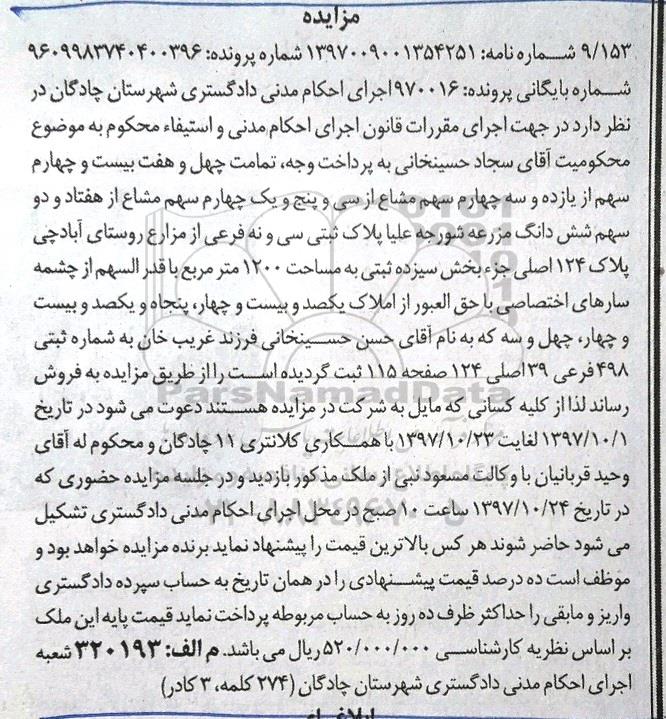 مزایده
۹/۱۵۳ شماره نامه: ۱۳۹۷۰۰۹۰۰۱۳۵۴۲۵۱ شماره پرونده: ۹۶۰۹۹۸۳۷۴۰۴۰۰۳۹۶
شماره بایگانی پرونده: ۹۷۰۰۱۶ اجرای احکام مدنی دادگستری شهرستان چادگان در
نظر دارد در جهت اجرای مقررات قانون اجرای احکام مدنی و استیفاء محکوم به موضوع
محکومیت آقای سجاد حسینخانی به پرداخت وجه، تمامت چهل و هفت بیست و چهارم
سهم از یازده و سه چهارم سهم مشاع از سی و پنج و یک چهارم سهم مشاع از هفتاد و دو
سهم شش دانگ مزرعه شورجه علیا پلاک ثبتی سی و نه فرعی از مزارع روستای آبادچی
پلاک ۱۲۴ اصلی جزء بخش سیزده ثبتی به مساحت ۱۲۰۰ متر مربع با قدر السهم از چشمه
سارهای اختصاصی با حق العبور از املاک یکصد و بیست و چهار، پنجاه و یکصد و بیست
و چهار، چهل و سه که به نام آقای حسن حسینخانی فرزند غریب خان به شماره ثبتی
۴۹۸ فرعی ۳۹ اصلی ۱۲۴ صفحه ۱۱۵ ثبت گردیده است را از طریق مزایده به فروش
رساند لذا از کلیه کسانی که مایل به شرکت در مزایده هستند دعوت می شود در تاریخ
۱۳۹۷/۱۰/۱ لغایت ۱۳۹۷/۱۰/۲۳ با همکاری کلانتری ۱۱ چادگان و محکوم له آقای
وحید قربانیان با وکالت مسعود نبی از ملک مذکور بازدید و در جلسه مزایده حضوری که
در تاریخ ۱۳۹۷/۱۰/۲۴ ساعت ۱۰ صبح در محل اجرای احکام مدنی دادگستری تشکیل
می شود حاضر شوند هر کس بالاترین قیمت را پیشنهاد نماید برنده مزایده خواهد بود و
موظف است ده درصد قیمت پیشنهادی را در همان تاریخ به حساب سپرده دادگستری
واریز و مابقی را حداکثر ظرف ده روز به حساب مربوطه پرداخت نماید قیمت پایه این ملک
بر اساس نظریه کارشناسی ۵۲۰/۰۰۰/۰۰۰ ریال می باشد. م الف: ۳۲۰۱۹۳ شعبه
اجرای احکام مدنی دادگستری شهرستان چادگان (۲۷۴ کلمه، ۳ کادر)
ParsNamadData